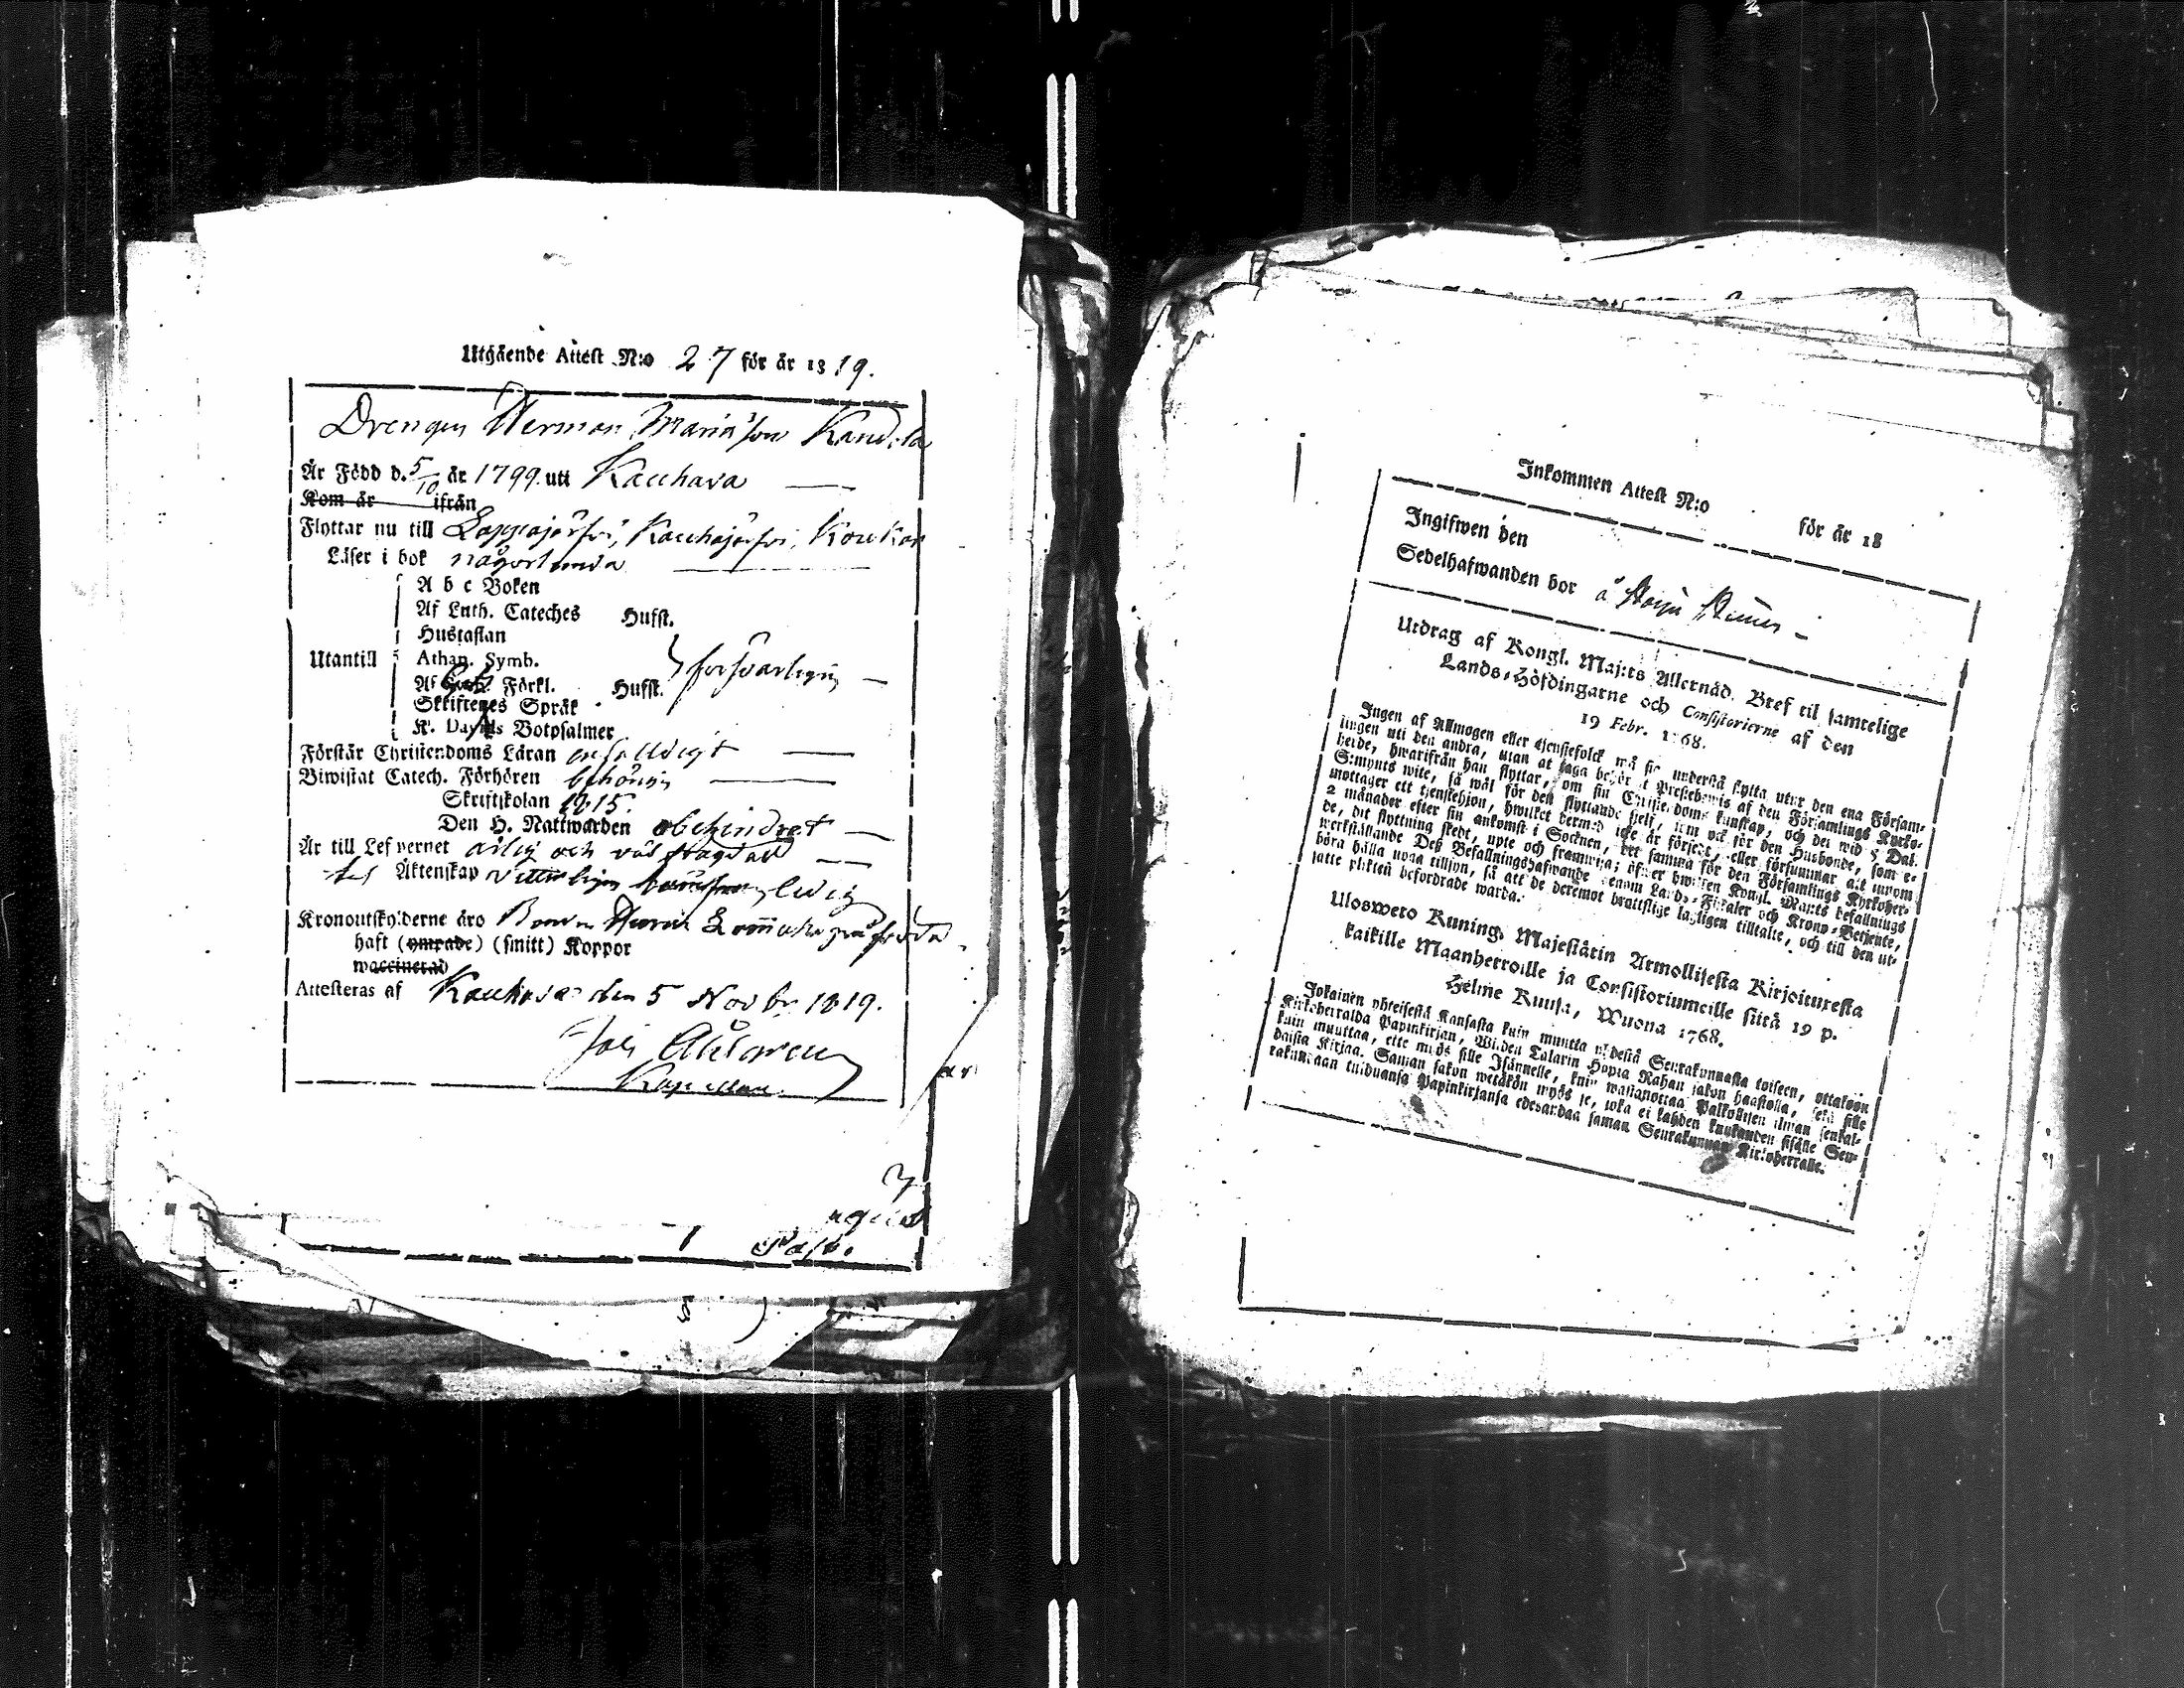 Utgående Attest N:o 27 för år 1819.
Drengen Herman Mariæson
Är Född d. 5/10 år 1799. uti Kauhava
Kom år ifrån
Flyttar nu till Lappajärfvi, Kauhajärfvi,
Läser i bok någorlunda
A b c Boken
Af Luth. Cateches Hufst.
Hustaflan
Utantill Athan. Symb. försvarligen
Af Förkl. Hufst.
Skriftenes Språk
K. Davids Botpsalmer
Förstår Christendoms Läran enfaldigt
Biwistat Catech. Förhören behörigen
Skriftskolan 1815.
Den H. Nattwarden obehindrat
Är till Lefvernet ärlig och väl
Äktenskap veterligen ledig
Kronoutskylderne äro
haft (ymrade) (smitt) Koppor
waccinerad
Attesteras af Kauhava den 5 Novbr 1819.
Kapellan.
Inkommen Attest N:o för år 18
Ingifwen den
Sedelhafwanden bor å
Utdrag af Kongl. Maj:ts Allernåd. Bref til samtelige
Lands-Höfdingarne och Consistorierne af den
19 Febr. 1768.
Ingen af Allmogen eller tjenstefolck må sig understå flytta utur den ena Församlingen
uti den andra, utan at taga behörigt Prestebewis af den Församlings Kyrkoherde,
hwarifrån han flyttar, om sin Christendoms kunskap, och det wid 5 Dal.
S:mynts wite, så wäl för den flyttande sjelf, som ock för den Husbonde, som emottager
ett tjenstehjon, hwilket dermed icke är försedt, eller försummar att inom
2 månader efter sin ankomst i Socknen, det samma för den Församlings Kyrkoherde,
dit flyttning skedt, upte och framwisa; öfwer hwilken Kongl. Maj:ts befallnings
werkställande Deß Befallningshafwande genom Lands-Fiskaler och Krono-Betjente,
böra hålla noga tillsyn, så att de deremot brottslige lagligen tilltalte, och till den utsatte
plikten befordrade warda.
Uloswero Kuning. Majestätin Armollisesta Kirjoituxesta
kaikille Maanherroille ja Consistoriumeille siitä 19 p.
Helme Kuusa, Wuona 1768.
Jokainen yhteisestä Kansasta kuin muutta yhdestä Seurakunnasta toiseen, ottakoon
Kirkoherralda Papinkirjan, Wiiden Talarin Hopia Rahan sakon haastolla, sekä sille
kuin muuttaa, ette myös sille Isännelle, kuin wastanottaa Palkollisen ilman senkaldaista
Kirjaa. Saman sakon wetäkön myös se, joka ei kahden kuukauden sisälle Seurakundaan
tulduansa Papinkirjansa edesandaa saman Seurakunnan Kirkoherralle.